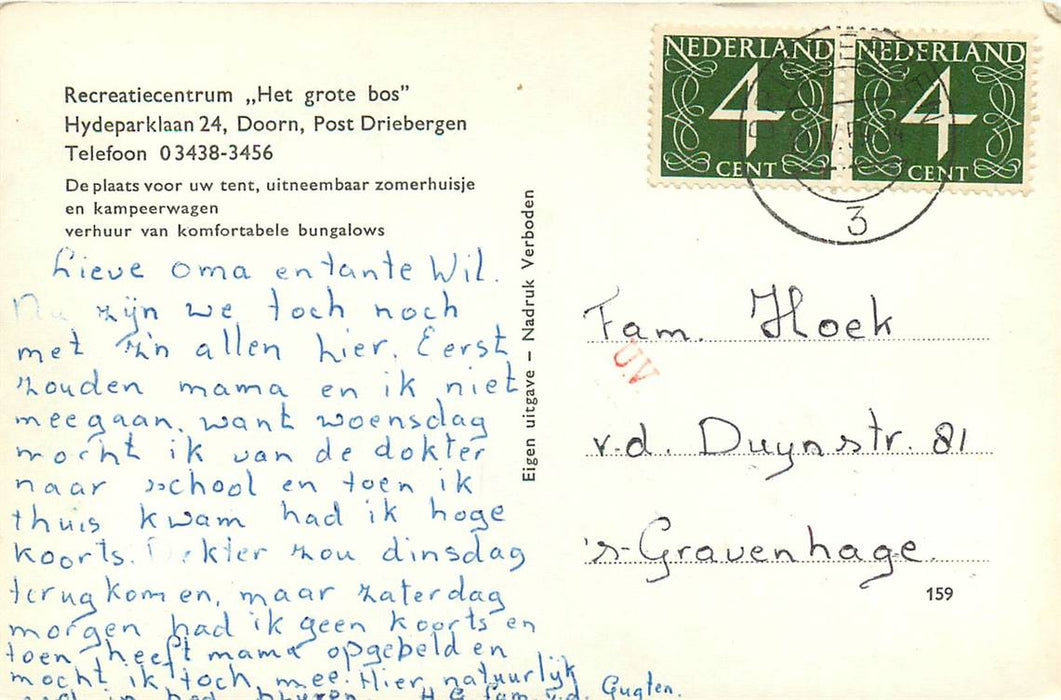 Recreatiecentrum „Het grote bos”
Hydeparklaan 24, Doorn, Post Driebergen
Telefoon 03438-3456
De plaats voor uw tent, uitneembaar zomerhuisje
en kampeerwagen
verhuur van komfortabele bungalows
Lieve oma en tante Wil.
Nu zijn we toch noch
met z'n allen hier. Eerst
zouden mama en ik niet
meegaan. want woensdag
mocht ik van de dokter
naar school en toen ik
thuis kwam had ik hoge
koorts. Dokter zou dinsdag
terug komen, maar zaterdag
morgen had ik geen koorts en
toen heeft mama opgebeld en
mocht ik toch mee. Hier natuurlijk
in bed blijven. H.G. fam. v.d. Gugten.
Eigen uitgave – Nadruk Verboden
NEDERLAND
4
CENT
NEDERLAND
4
CENT
3
Fam. Hoek
UV
v.d. Duynstr. 81
's-Gravenhage.
159